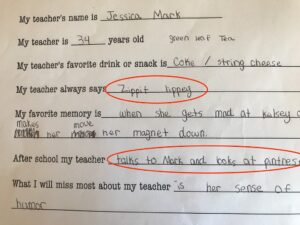 My teacher's name is Jessica Mark
My teacher is 34 years old green leaf Tea
My teacher's favorite drink or snack is Coke / string cheese
My teacher always says Zippit lippey
My favorite memory is when she gets mad at kelsey
makes her move her magnet down.
After school my teacher talks to Mark and looks at pintres
What I will miss most about my teacher is her sense of
humor